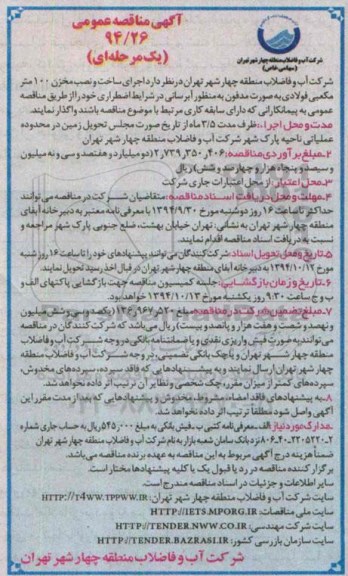 آگهی مناقصه عمومی
۹۴/۲۶
(یک مرحله‌ای)
شرکت آب و فاضلاب منطقه چهار شهر تهران
(سهامی خاص)
شرکت آب و فاضلاب منطقه چهار شهر تهران در نظر دارد اجرای ساخت و نصب مخزن ۱۰۰ متر
مکعبی فولادی به صورت مدفون به منظور آبرسانی در شرایط اضطراری خود را از طریق مناقصه
عمومی به پیمانکارانی که دارای سابقه کاری مرتبط با موضوع مناقصه باشند واگذار نمایند.
مدت و محل اجرا: ظرف مدت ۳/۵ ماه از تاریخ صورت مجلس تحویل زمین در محدوده
عملیاتی ناحیه پارک شهر شرکت آب و فاضلاب منطقه چهار شهر تهران
۲.مبلغ برآوردی مناقصه: ۲٫۷۳۹٫۳۵۰٫۴۰۶ (دو میلیارد و هفتصد و سی و نه میلیون
و سیصد و پنجاه هزار و چهارصد و شش) ریال
۳.محل اعتبار: از محل اعتبارات جاری شرکت
۴.مهلت و محل دریافت اسناد مناقصه: متقاضیان شرکت در مناقصه می توانند
حداکثر تا ساعت ۱۶ روز دوشنبه مورخ ۱۳۹۴/۹/۳۰ با معرفی‌نامه معتبر به دبیرخانه آبفای
منطقه چهار شهر تهران به نشانی: تهران خیابان بهشت، ضلع جنوبی پارک شهر مراجعه و
نسبت به دریافت اسناد مناقصه اقدام نمایند.
۵.تاریخ و محل تحویل اسناد: شرکت‌کنندگان می توانند پیشنهادهای خود را تا ساعت ۱۶ روز شنبه
مورخ ۱۳۹۴/۱۰/۱۲ به دبیرخانه آبفای منطقه چهار شهر تهران در قبال اخذ رسید تحویل نمایند.
۶.تاریخ و زمان بازگشایی: جلسه کمیسیون مناقصه جهت بازگشایی پاکتهای الف و
ب و ج ساعت ۹:۳۰ روز یکشنبه مورخ ۱۳۹۴/۱۰/۱۳ خواهد بود.
۷.مبلغ تضمین شرکت در مناقصه: مبلغ ۱۳۶٫۹۶۷٫۵۲۰ (یکصد و سی و شش میلیون
و نهصد و شصت و هفت هزار و پانصد و بیست) ریال می باشد که شرکت کنندگان در مناقصه
می توانند به صورت فیش واریزی نقدی و یا ضمانتنامه بانکی در وجه شرکت آب و فاضلاب
منطقه چهار شهر تهران و یا چک بانکی تضمینی در وجه شرکت آب و فاضلاب منطقه
چهار شهر تهران ارسال نمایند و به پیشنهادهایی که فاقد سپرده، سپرده‌های مخدوش،
سپرده‌های کمتر از میزان مقرر، چک شخصی و نظایر آن ترتیب اثر داده نخواهد شد.
۸.به پیشنهادهای فاقد امضاء، مشروط، مخدوش و پیشنهادهایی که بعد از مدت مقرر این
آگهی واصل شود مطلقاً ترتیب اثر داده نخواهد شد.
مدارک مورد نیاز: الف. معرفی‌نامه کتبی ب. فیش بانکی به مبلغ ۵۴۵٫۰۰۰ ریال به حساب جاری شماره
بانک سامان شعبه بازار به نام شرکت آب و فاضلاب منطقه چهار شهر تهران
ضمناً هزینه درج آگهی مربوط به این مناقصه به عهده برنده مناقصه می باشد.
برگزار کننده مناقصه در رد یا قبول یک یا کلیه پیشنهادها مختار است.
سایر اطلاعات و جزئیات در اسناد مناقصه مندرج است.
سایت شرکت آب و فاضلاب منطقه چهار شهر تهران: HTTP://T4WW.TPPWW.IR
سایت ملی مناقصات: HTTP://IETS.MPORG.IR
سایت شرکت مهندسی: HTTP://TENDER.NWW.CO.IR
سایت سازمان بازرسی کشور: HTTP://TENDER.BAZRASI.IR
شرکت آب و فاضلاب منطقه چهار شهر تهران